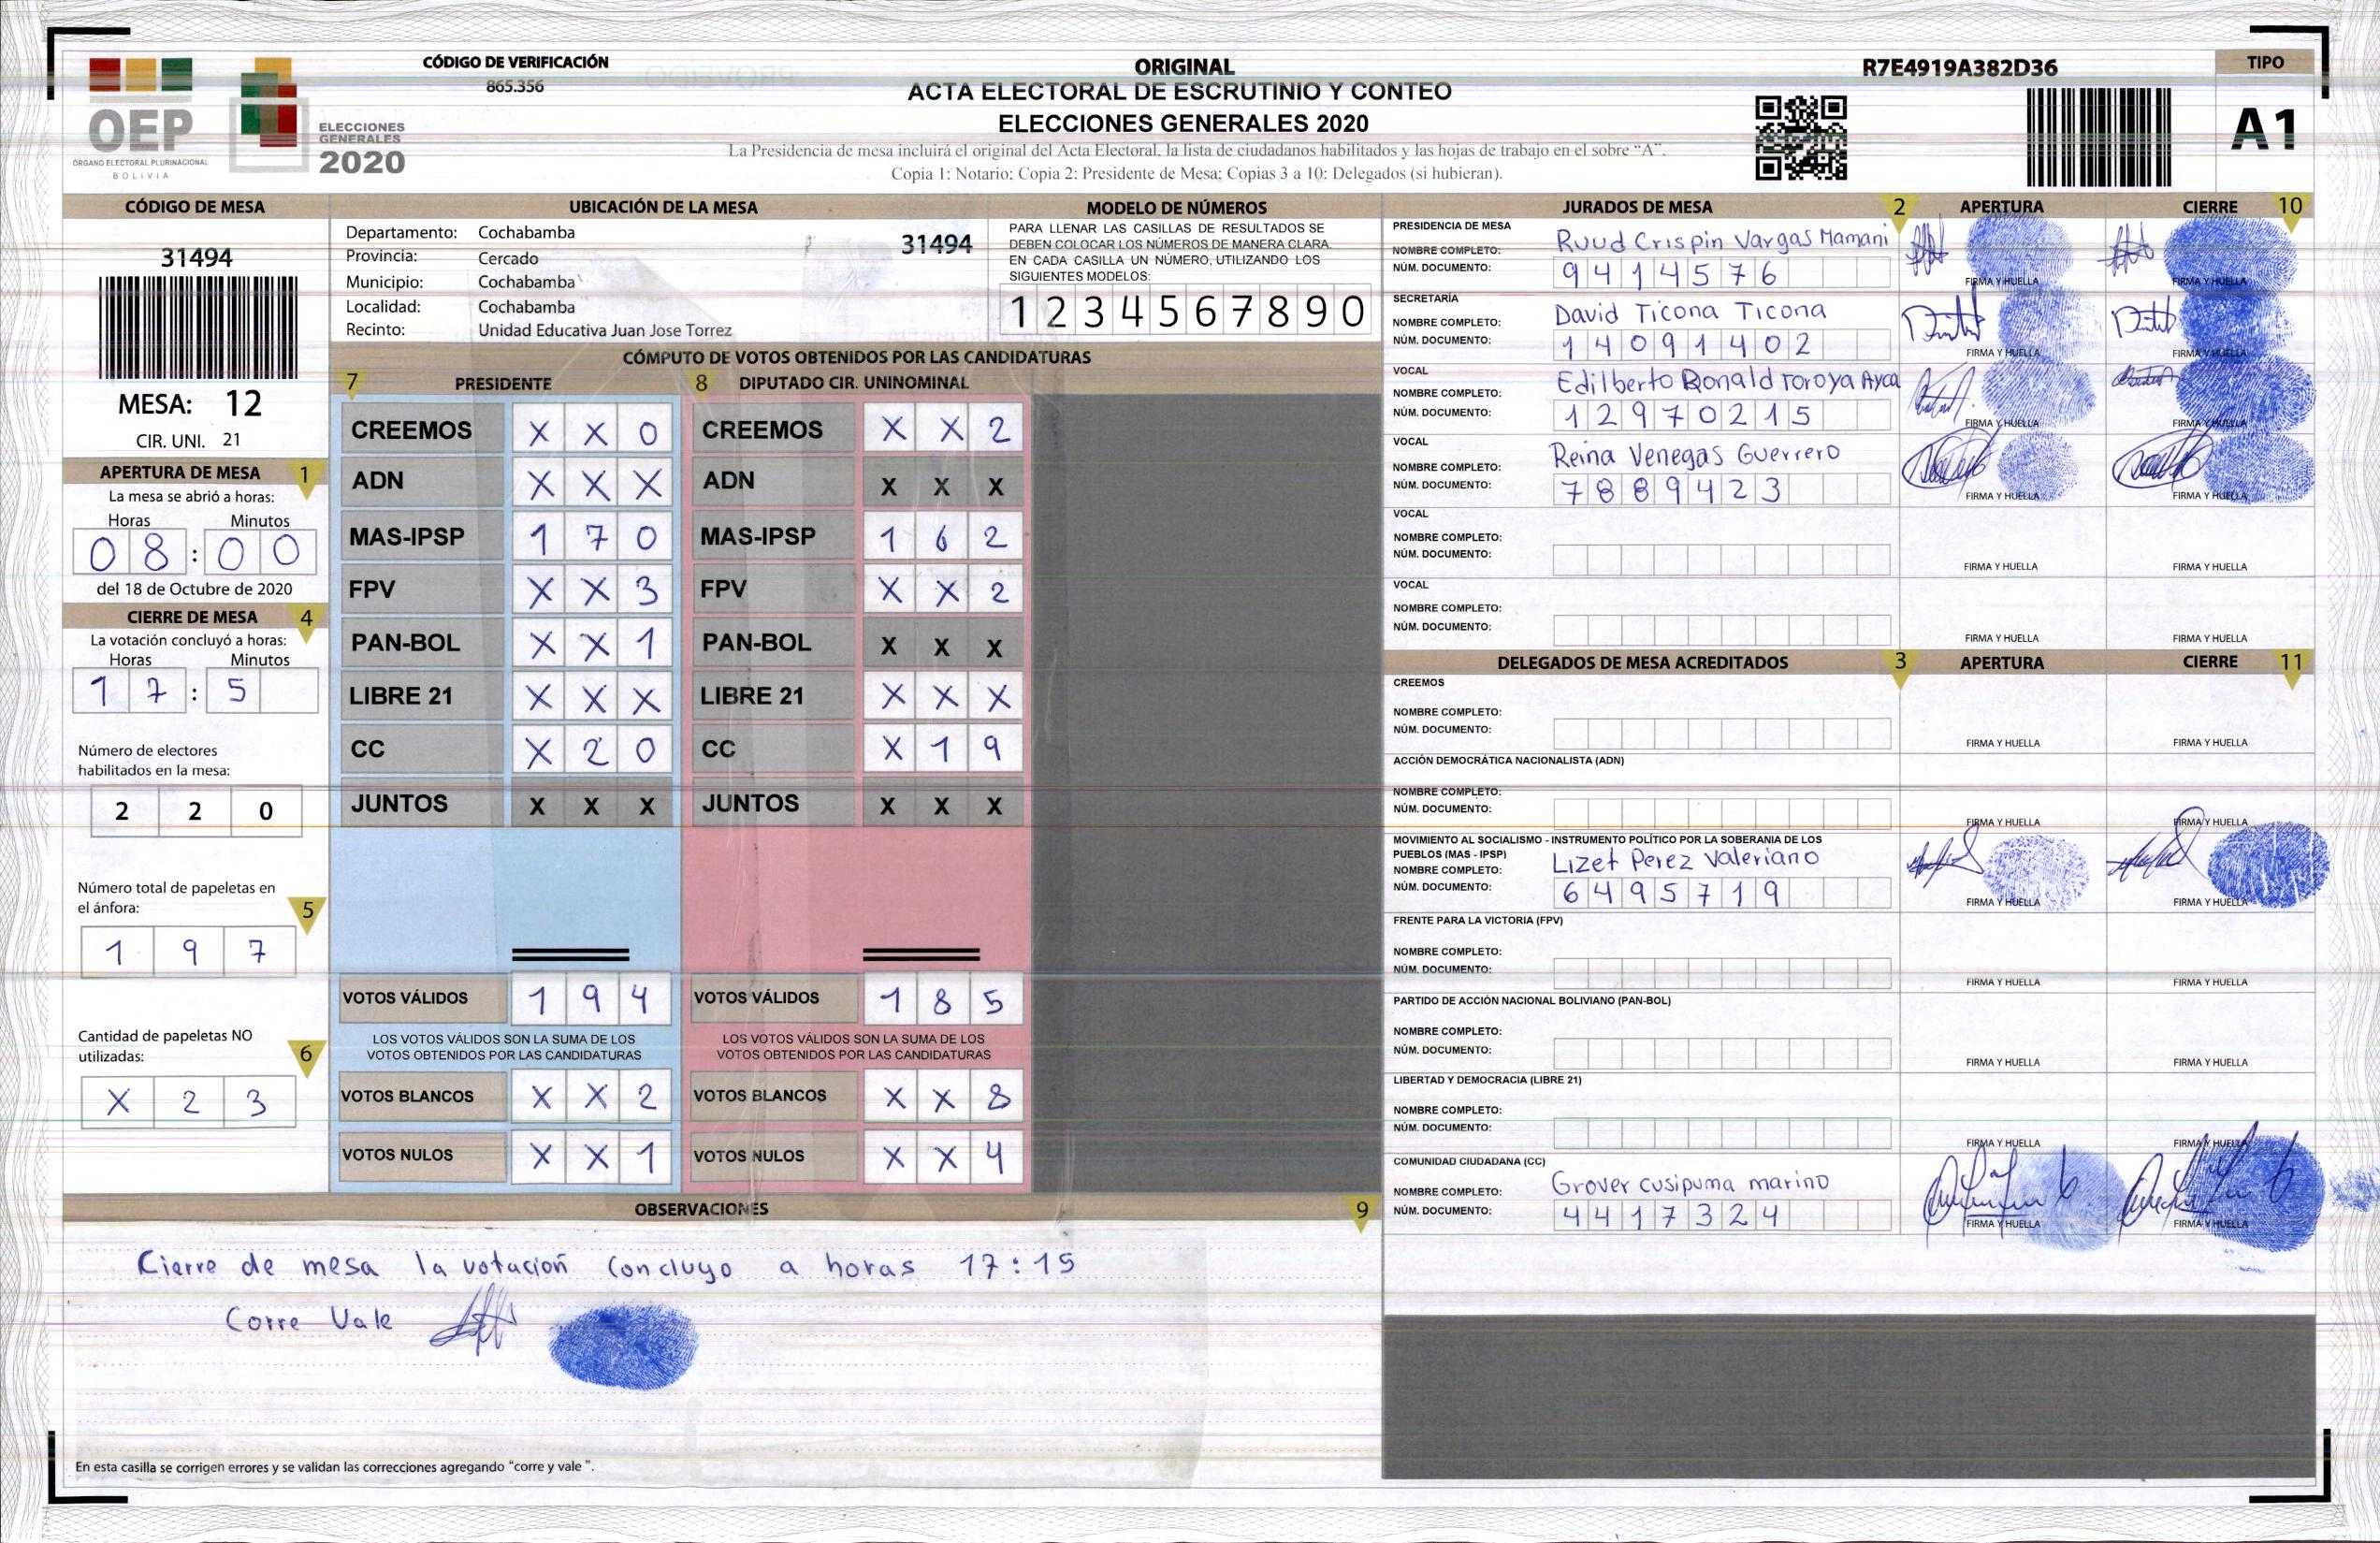 CÓDIGO DE VERIFICACIÓN
865.356
OEP
ÓRGANO ELECTORAL PLURINACIONAL
BOLIVIA
ELECCIONES
GENERALES
2020
ORIGINAL
ACTA ELECTORAL DE ESCRUTINIO Y CONTEO
ELECCIONES GENERALES 2020
La Presidencia de mesa incluirá el original del Acta Electoral, la lista de ciudadanos habilitados y las hojas de trabajo en el sobre “A”.
Copia 1: Notario; Copia 2: Presidente de Mesa; Copias 3 a 10: Delegados (si hubieran).
R7E4919A382D36
TIPO
A1
CÓDIGO DE MESA
31494
MESA: 12
CIR. UNI. 21
APERTURA DE MESA 1
La mesa se abrió a horas:
Horas Minutos
08:00
del 18 de Octubre de 2020
CIERRE DE MESA 4
La votación concluyó a horas:
Horas Minutos
17:5
Número de electores
habilitados en la mesa:
2 2 0
Número total de papeletas en
el ánfora:
5
1 9 7
Cantidad de papeletas NO
utilizadas:
6
X 2 3
UBICACIÓN DE LA MESA
Departamento: Cochabamba
31494
Provincia: Cercado
Municipio: Cochabamba
Localidad: Cochabamba
Recinto: Unidad Educativa Juan Jose Torrez
MODELO DE NÚMEROS
PARA LLENAR LAS CASILLAS DE RESULTADOS SE
DEBEN COLOCAR LOS NÚMEROS DE MANERA CLARA.
EN CADA CASILLA UN NÚMERO, UTILIZANDO LOS
SIGUIENTES MODELOS:
1 2 3 4 5 6 7 8 9 0
CÓMPUTO DE VOTOS OBTENIDOS POR LAS CANDIDATURAS
7 PRESIDENTE 8 DIPUTADO CIR. UNINOMINAL
CREEMOS X X 0 CREEMOS X X 2
ADN X X X ADN X X X
MAS-IPSP 1 7 0 MAS-IPSP 1 6 2
FPV X X 3 FPV X X 2
PAN-BOL X X 1 PAN-BOL X X X
LIBRE 21 X X X LIBRE 21 X X X
CC X 2 0 CC X 1 9
JUNTOS X X X JUNTOS X X X
VOTOS VÁLIDOS 1 9 4 VOTOS VÁLIDOS 1 8 5
LOS VOTOS VÁLIDOS SON LA SUMA DE LOS LOS VOTOS VÁLIDOS SON LA SUMA DE LOS
VOTOS OBTENIDOS POR LAS CANDIDATURAS VOTOS OBTENIDOS POR LAS CANDIDATURAS
VOTOS BLANCOS X X 2 VOTOS BLANCOS X X 8
VOTOS NULOS X X 1 VOTOS NULOS X X 4
OBSERVACIONES 9
Cierre de mesa la votacion Concluyo a horas 17:15
Corre Vale
En esta casilla se corrigen errores y se validan las correcciones agregando “corre y vale ”.
JURADOS DE MESA 2 APERTURA CIERRE 10
PRESIDENCIA DE MESA
NOMBRE COMPLETO: Ruud Crispin Vargas Mamani
NÚM. DOCUMENTO: 9414576
FIRMA Y HUELLA FIRMA Y HUELLA
SECRETARÍA
NOMBRE COMPLETO: David Ticona Ticona
NÚM. DOCUMENTO: 14091402
FIRMA Y HUELLA FIRMA Y HUELLA
VOCAL
NOMBRE COMPLETO: Edilberto Ronald Toroya Ayca
NÚM. DOCUMENTO: 12970215
FIRMA Y HUELLA FIRMA Y HUELLA
VOCAL
NOMBRE COMPLETO: Reina Venegas Guerrero
NÚM. DOCUMENTO: 7889423
FIRMA Y HUELLA FIRMA Y HUELLA
VOCAL
NOMBRE COMPLETO:
NÚM. DOCUMENTO:
FIRMA Y HUELLA FIRMA Y HUELLA
VOCAL
NOMBRE COMPLETO:
NÚM. DOCUMENTO:
FIRMA Y HUELLA FIRMA Y HUELLA
DELEGADOS DE MESA ACREDITADOS 3 APERTURA CIERRE 11
CREEMOS
NOMBRE COMPLETO:
NÚM. DOCUMENTO:
FIRMA Y HUELLA FIRMA Y HUELLA
ACCIÓN DEMOCRÁTICA NACIONALISTA (ADN)
NOMBRE COMPLETO:
NÚM. DOCUMENTO:
FIRMA Y HUELLA FIRMA Y HUELLA
MOVIMIENTO AL SOCIALISMO - INSTRUMENTO POLÍTICO POR LA SOBERANIA DE LOS
PUEBLOS (MAS - IPSP)
NOMBRE COMPLETO: Lizet Perez Valeriano
NÚM. DOCUMENTO: 6495719
FIRMA Y HUELLA FIRMA Y HUELLA
FRENTE PARA LA VICTORIA (FPV)
NOMBRE COMPLETO:
NÚM. DOCUMENTO:
FIRMA Y HUELLA FIRMA Y HUELLA
PARTIDO DE ACCIÓN NACIONAL BOLIVIANO (PAN-BOL)
NOMBRE COMPLETO:
NÚM. DOCUMENTO:
FIRMA Y HUELLA FIRMA Y HUELLA
LIBERTAD Y DEMOCRACIA (LIBRE 21)
NOMBRE COMPLETO:
NÚM. DOCUMENTO:
FIRMA Y HUELLA FIRMA Y HUELLA
COMUNIDAD CIUDADANA (CC)
NOMBRE COMPLETO: Grover cusipuma marino
NÚM. DOCUMENTO: 4417324
FIRMA Y HUELLA FIRMA Y HUELLA